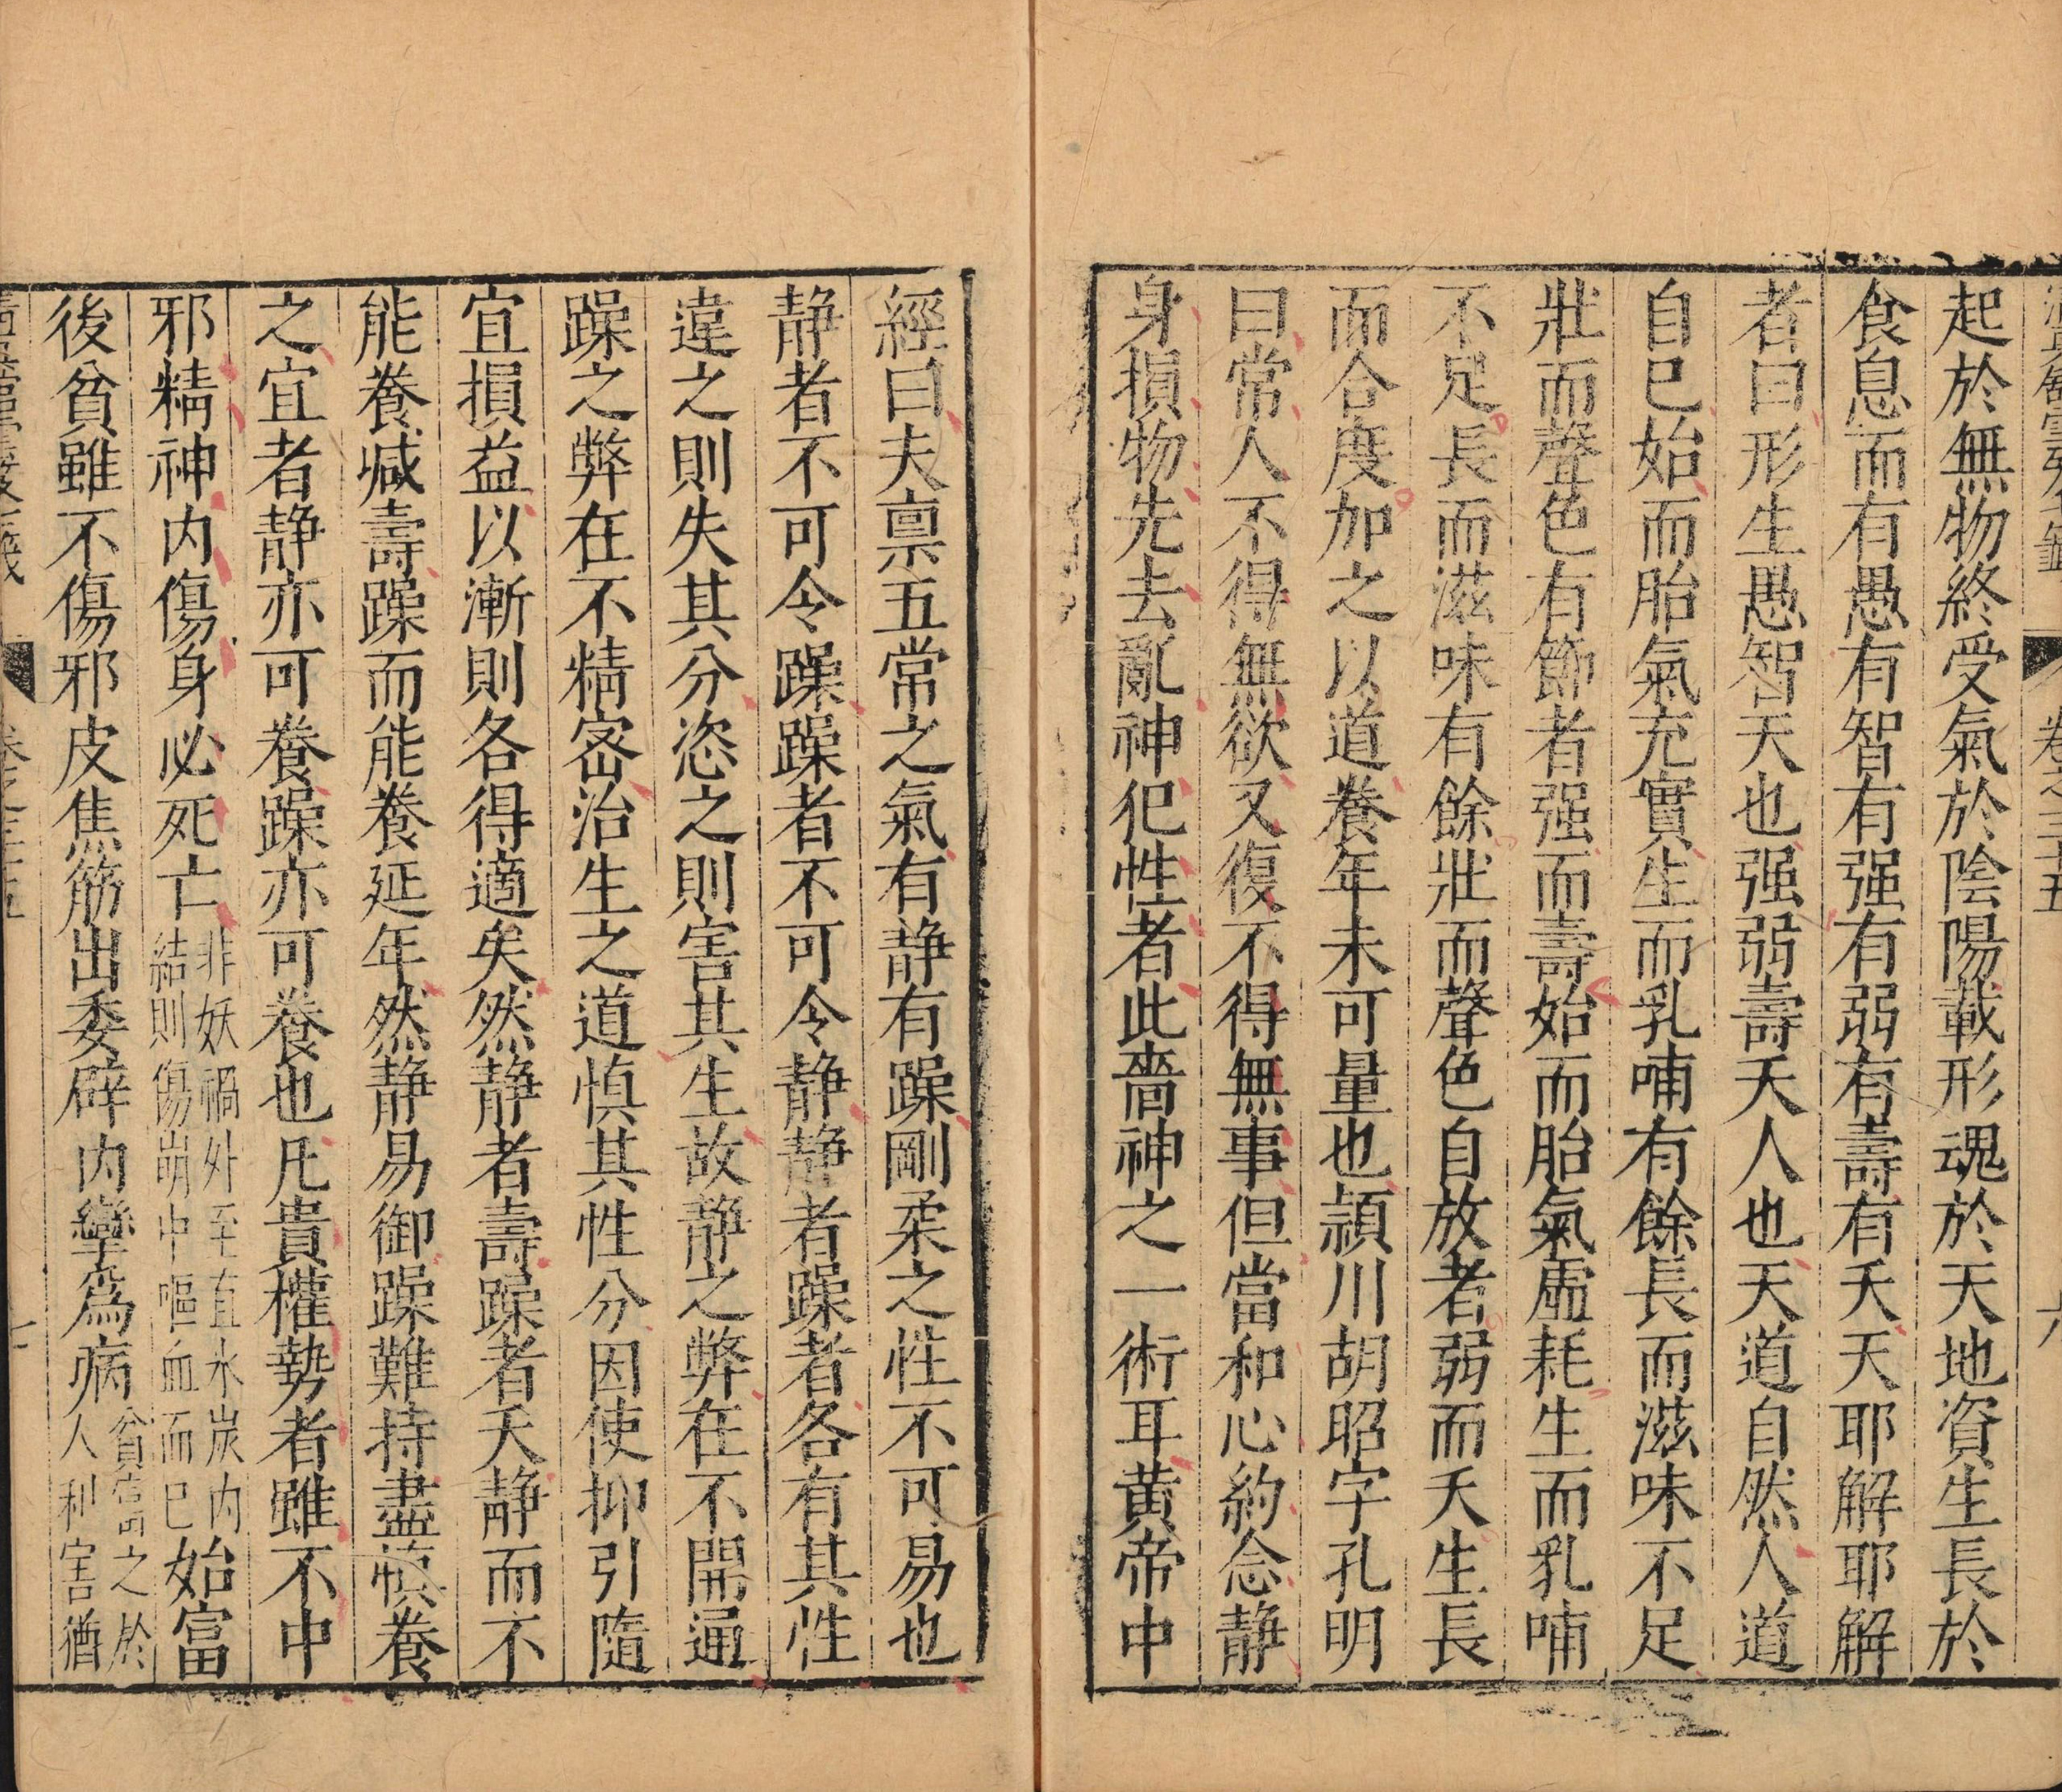 起於無物終受氣於陰陽載形魂於天地資生長於
食息而有愚有智有强有弱有壽有夭天耶解耶解
者曰形生愚智天也强弱壽夭人也天道自然人道
自巳始而胎氣充實生而乳哺有餘長而滋味不足
壯而聲色有節者强而壽始而胎氣虛耗生而乳哺
不足長而滋味有餘壯而聲色自放者弱而夭生長
而合度加之以道養年未可量也潁川胡昭字孔明
曰常人不得無欲又復不得無事但當和心約念静
身損物先去亂神犯性者此嗇神之一術耳黄帝中
經曰夫禀五常之氣有静有躁剛柔之性不可易也
静者不可令躁躁者不可令静静者躁者各有其性
違之則失其分恣之則害其生故静之弊在不開通
躁之弊在不精宻治生之道慎其性分因使抑引隨
宜損益以漸則各得適矣然静者壽躁者夭静而不
能養减壽躁而能養延年然静易御躁難持盡慎養
之宜者静亦可養躁亦可養也凡貴權勢者雖不中
邪精神内傷身必死亡
非妖禍外至直氷炭内
結則傷崩中嘔血而巳
始富
後貧雖不傷邪皮焦筋出委辟内攣爲病
貧富之於
人利害猶
卷之三十五
六
七